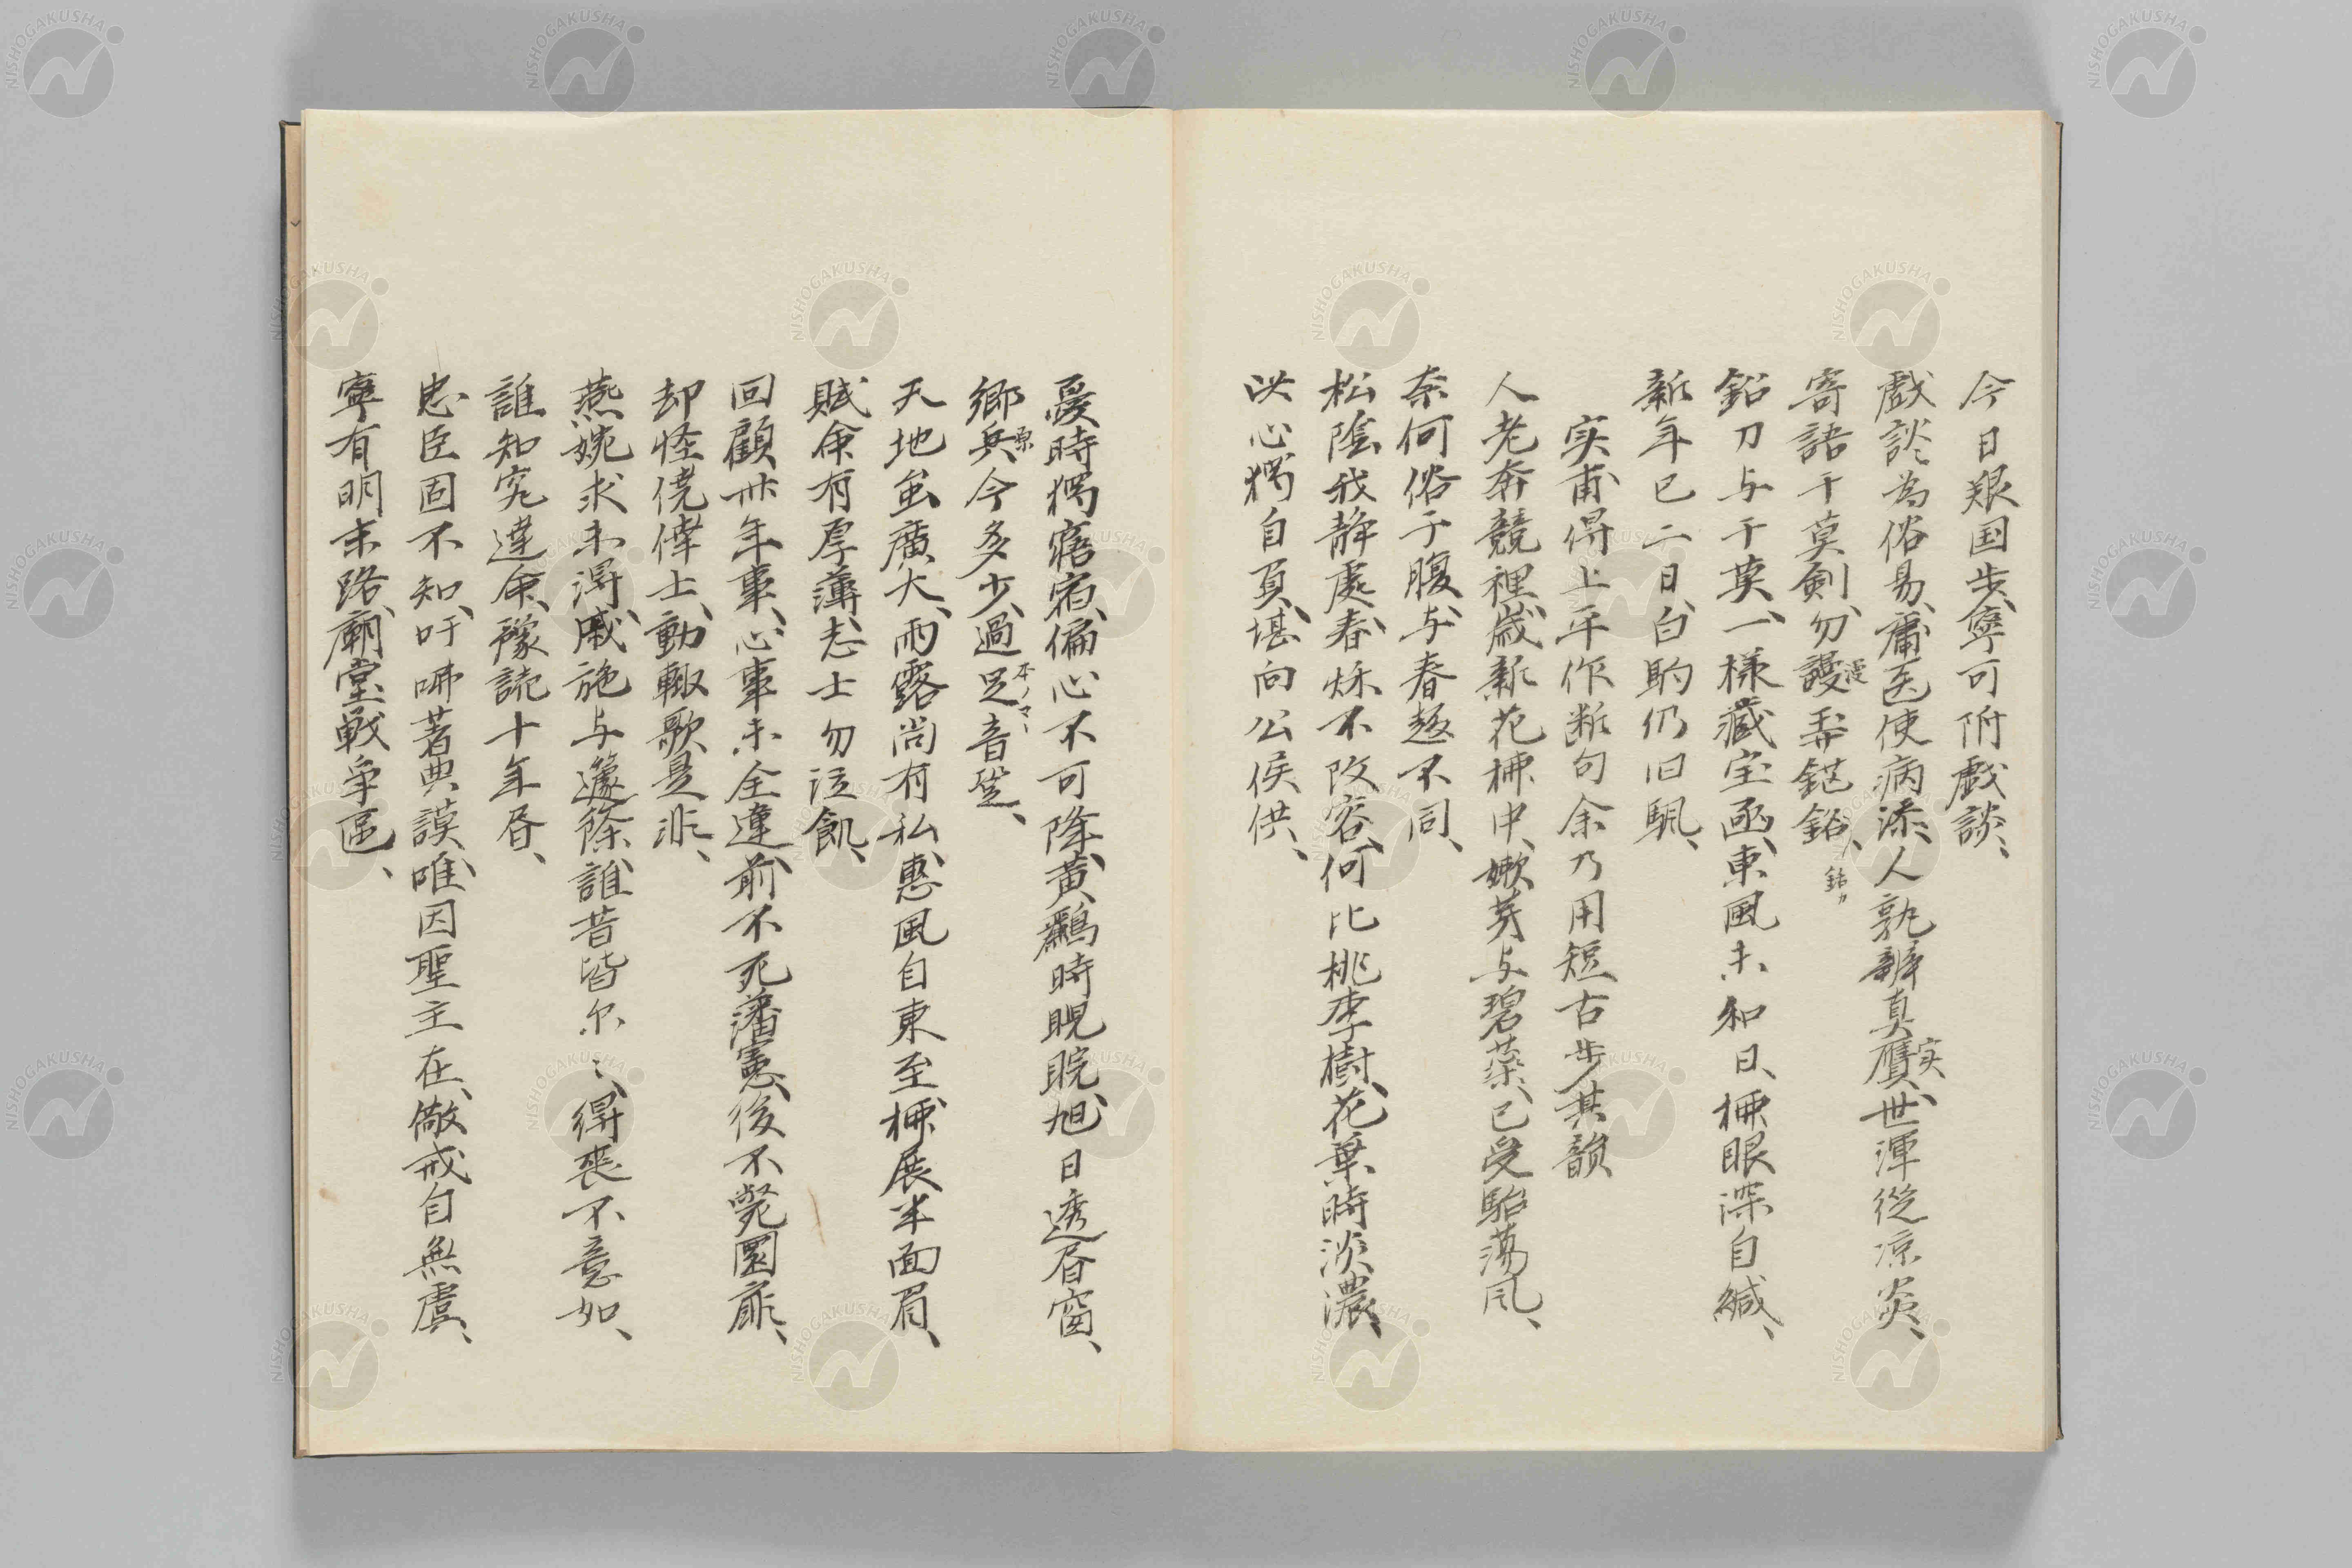 今日艱国步、寧可附戯談、
戯談為俗易、庸医使病添、人孰辨真贋、世渾從凉炎、
実
寄語干莫剣、勿謾弄鉛、
漫
鉛刀与干莫、一様蔵宝函、東風未知日、柳眼深自緘、
新年已二日、白駒仍旧駆、
実甫得上平作断句余乃用短古步其韻
人老奔競裡、歳新花柳中、嫩芽与碧蘂、已受駘蕩風、
奈何俗子腹、与春趣不同、
松陰我静處、春秌不改容、何比桃李樹、花葉時淡濃、
心獨自頁、堪向公侯供、
憂時獨寤宿、偏心不可降、黄鸝時睍睆、旭日透昏窗、
鄉兵今多少、過足音跫、
原
本ノマヽ
天地虽廣大、雨露尚有私、惠風自東至、柳展半面眉、
賦命有厚薄、志士勿泣飢、
回顧卅年事、心事未全違、前不死藩憲、後不斃圜扉、
却怪僥倖士、動輙歌是非、
燕婉求未得、戚施与籧篨、誰昔皆尔〻、得喪不意如、
誰知窮達命、豫読十年書、
忠臣固不知、吁咈著典謨、唯因聖主在、儆戒自無虞、
寧有明末路、廟堂戦争區、